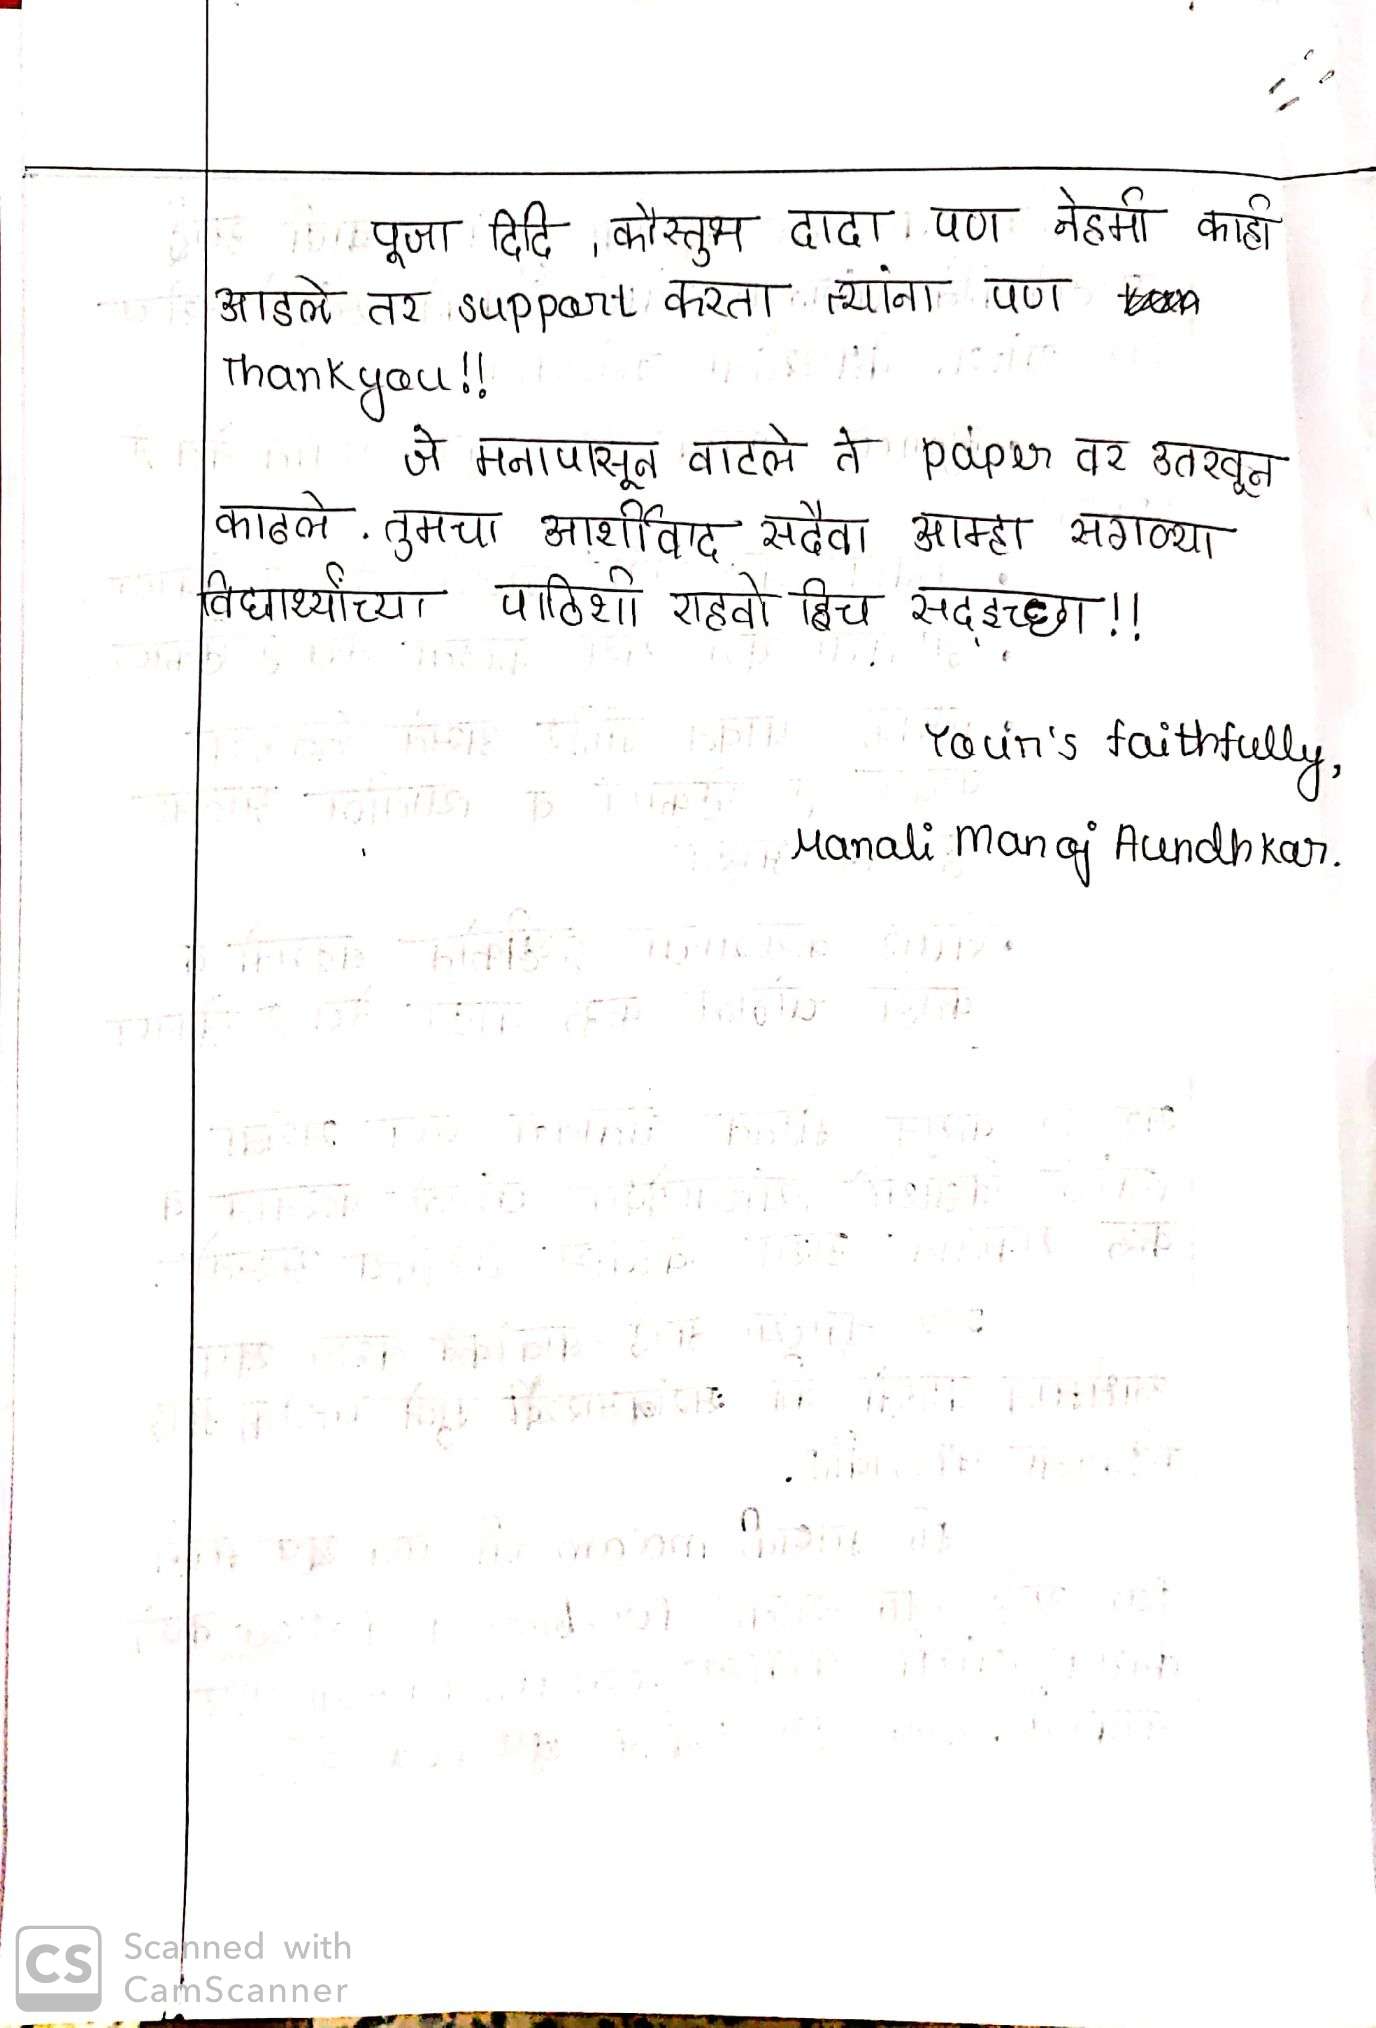 पूजा दिदि, कौस्तुभ दादा पण नेहमी काही
आडले तर support करता त्यांना पण
Thankyou!!
जे मनापासून वाटले ते paper वर उतरवून
काढले. तुमचा आर्शीवाद सदैवा आम्हा सगळ्या
विद्यार्थ्यांच्या पाठिशी राहवो हिच सद्इच्छा!!
Your's faithfully,
Manali Manoj Aundhkar.
CS Scanned with
CamScanner